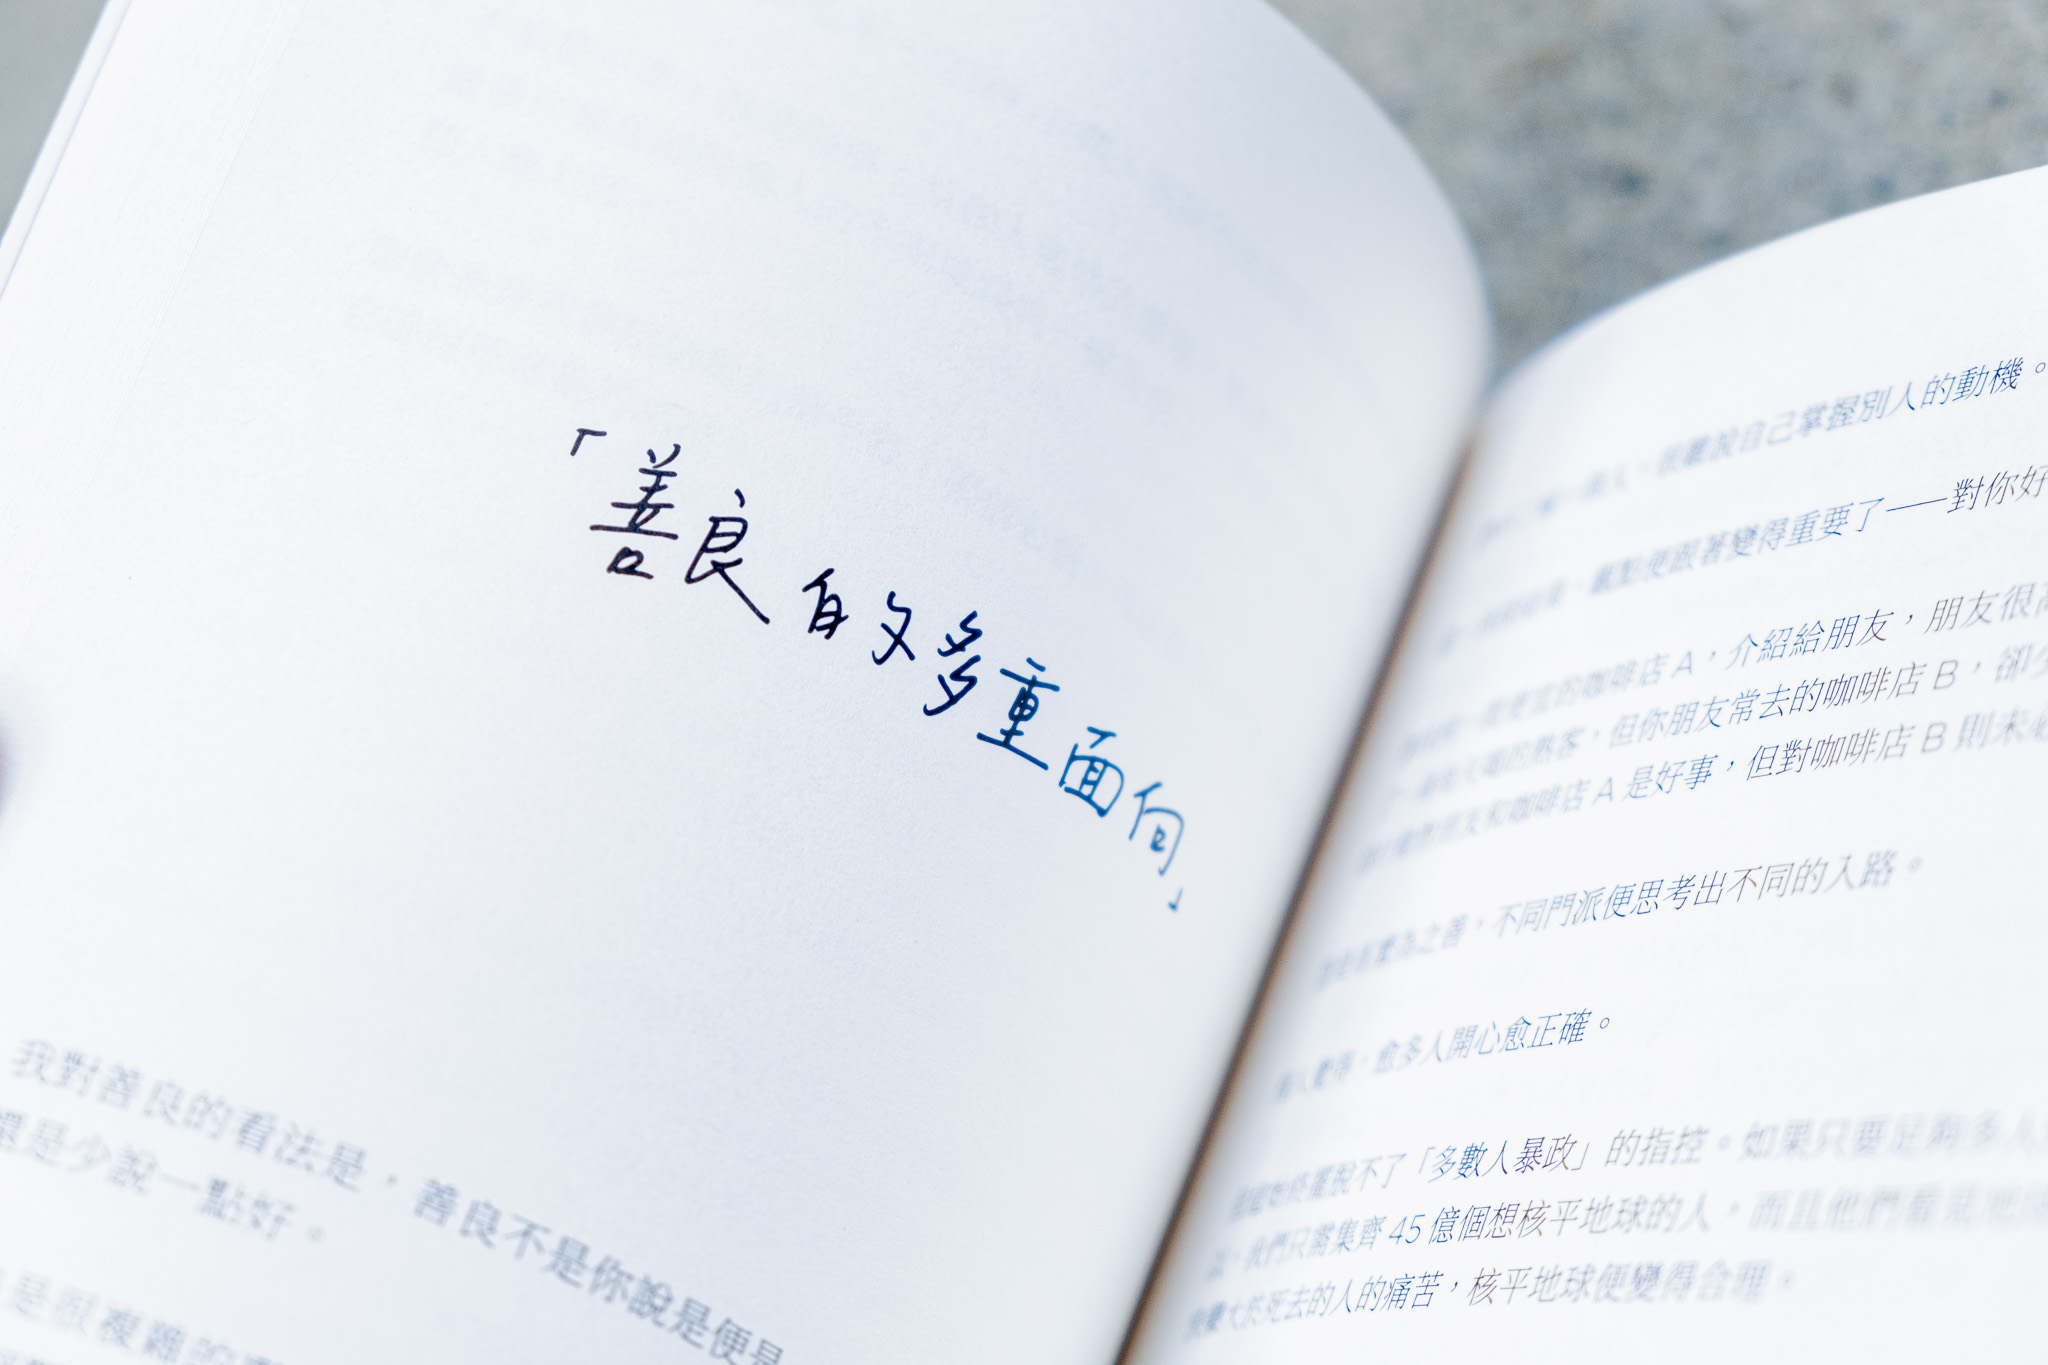 「善良的多重面向」
我對善良的看法是，善良不是你說是便是
還是少說一點好。
是很複雜的
很難說自己掌握別人的動機。
觀點便跟著變得重要了——對你好
便宜的咖啡店 A，介紹給朋友，朋友很高
的熟客，但你朋友常去的咖啡店 B，卻少
朋友和咖啡店 A 是好事，但對咖啡店 B 則未必
為之善，不同門派便思考出不同的入路。
愈多人開心愈正確。
始終擺脫不了「多數人暴政」的指控。如果只要足夠多人
我們只需集齊 45 億個想核平地球的人，而且他們看見地球
大於死去的人的痛苦，核平地球便變得合理。